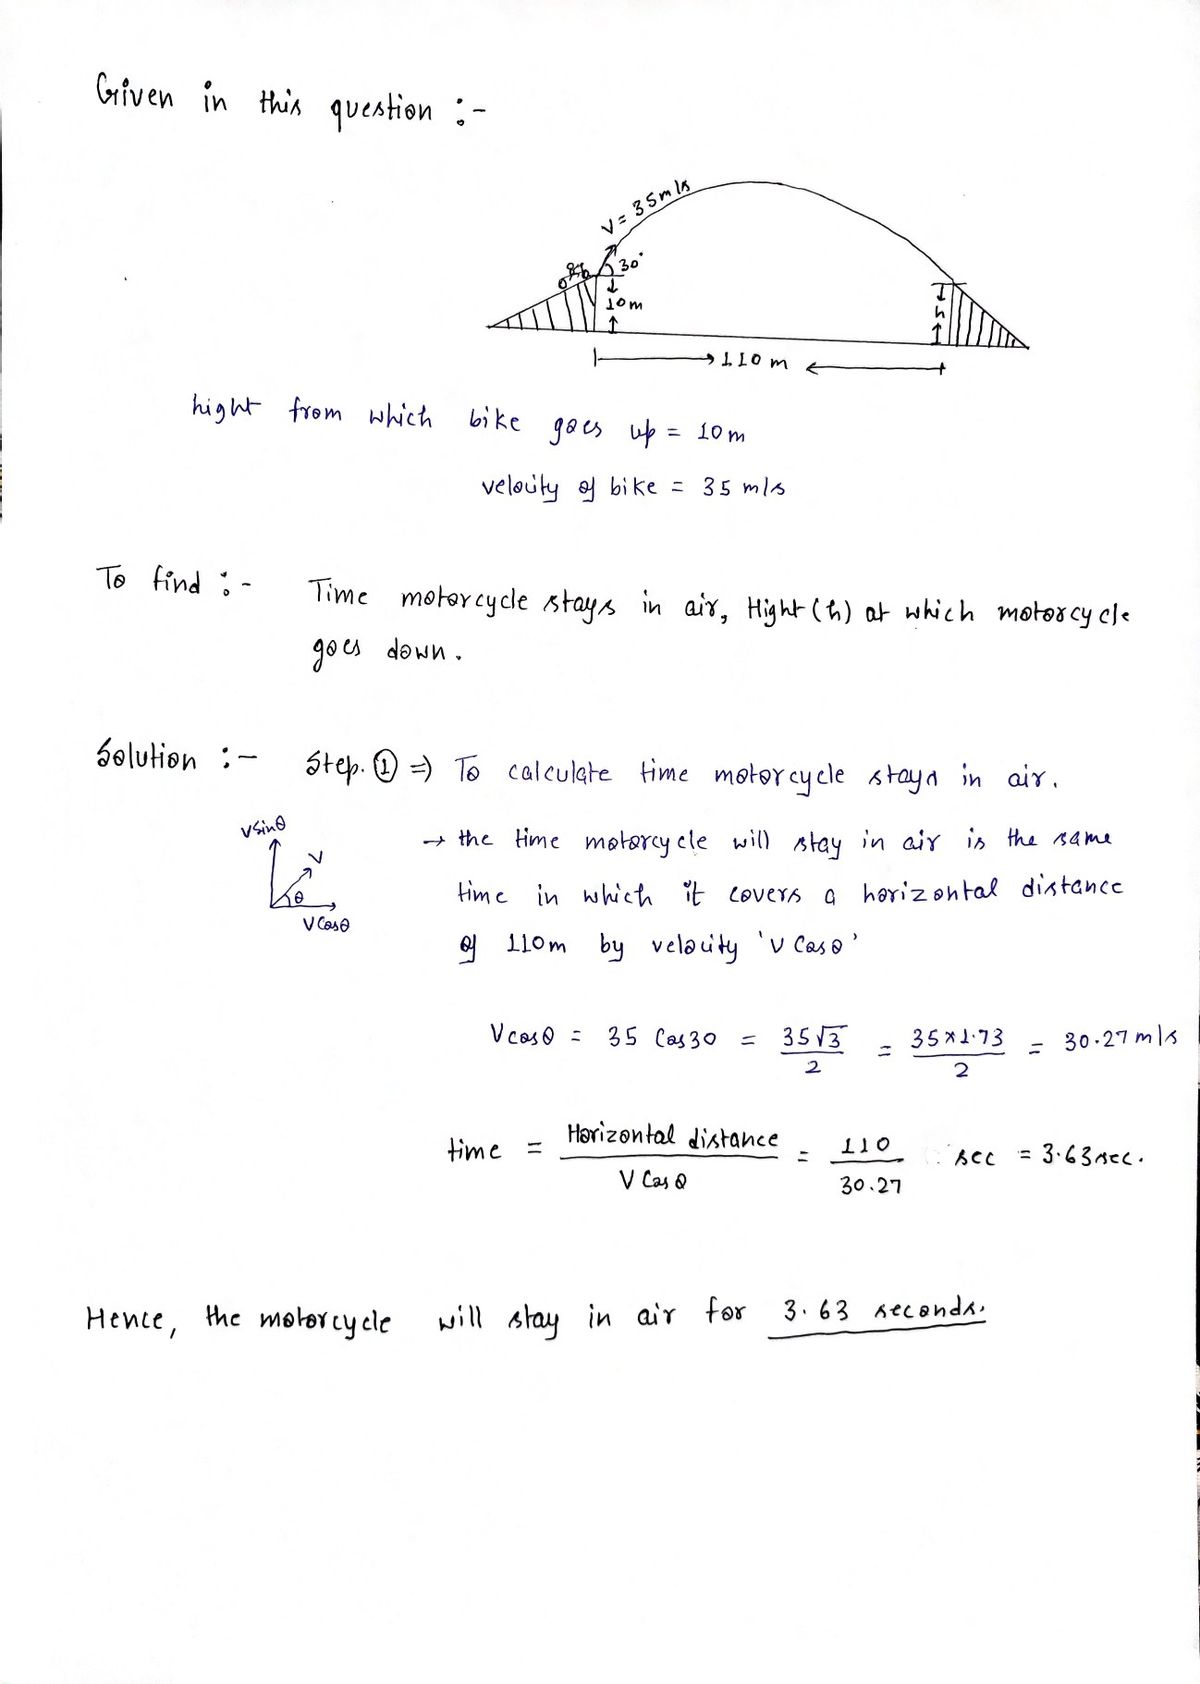 Given in this question :-
V = 35 m/s
30°
10m
h
110 m
hight from which bike goes up = 10m
velocity of bike = 35 m/s
To find :- Time motorcycle stays in air, Hight (h) at which motorcycle
goes down.
Solution :- Step. ① ⇒ To calculate time motorcycle stays in air.
→ the time motorcycle will stay in air is the same
time in which it covers a horizontal distance
of 110m by velocity 'V Cosθ'
VSinθ
V
θ
VCosθ
Vcosθ = 35 Cos30 = 35√3/2 = 35×1.73/2 = 30.27 m/s
time = Horizontal distance/V Cosθ = 110/30.27 sec = 3.63 sec.
Hence, the motorcycle will stay in air for 3.63 seconds.